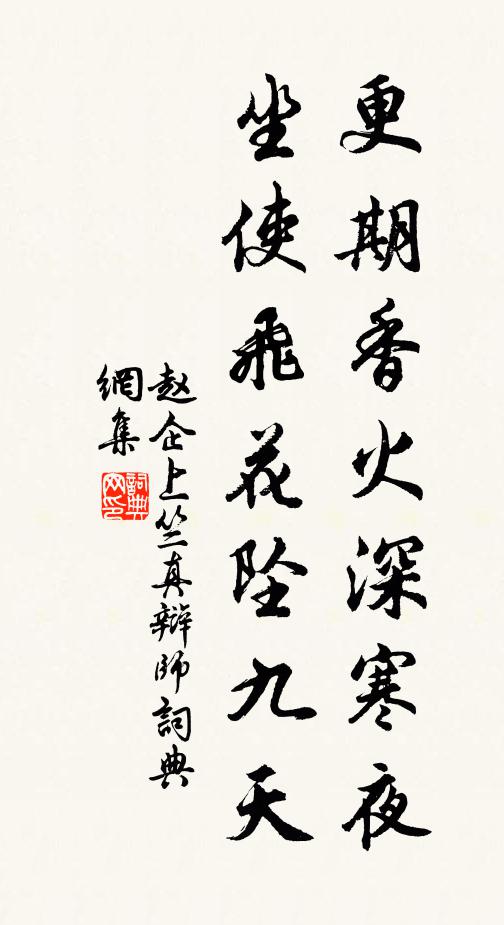 更期香火深寒夜
坐使飛花坠九天
赵企上竺真辯師詞典
網集
詞典网印